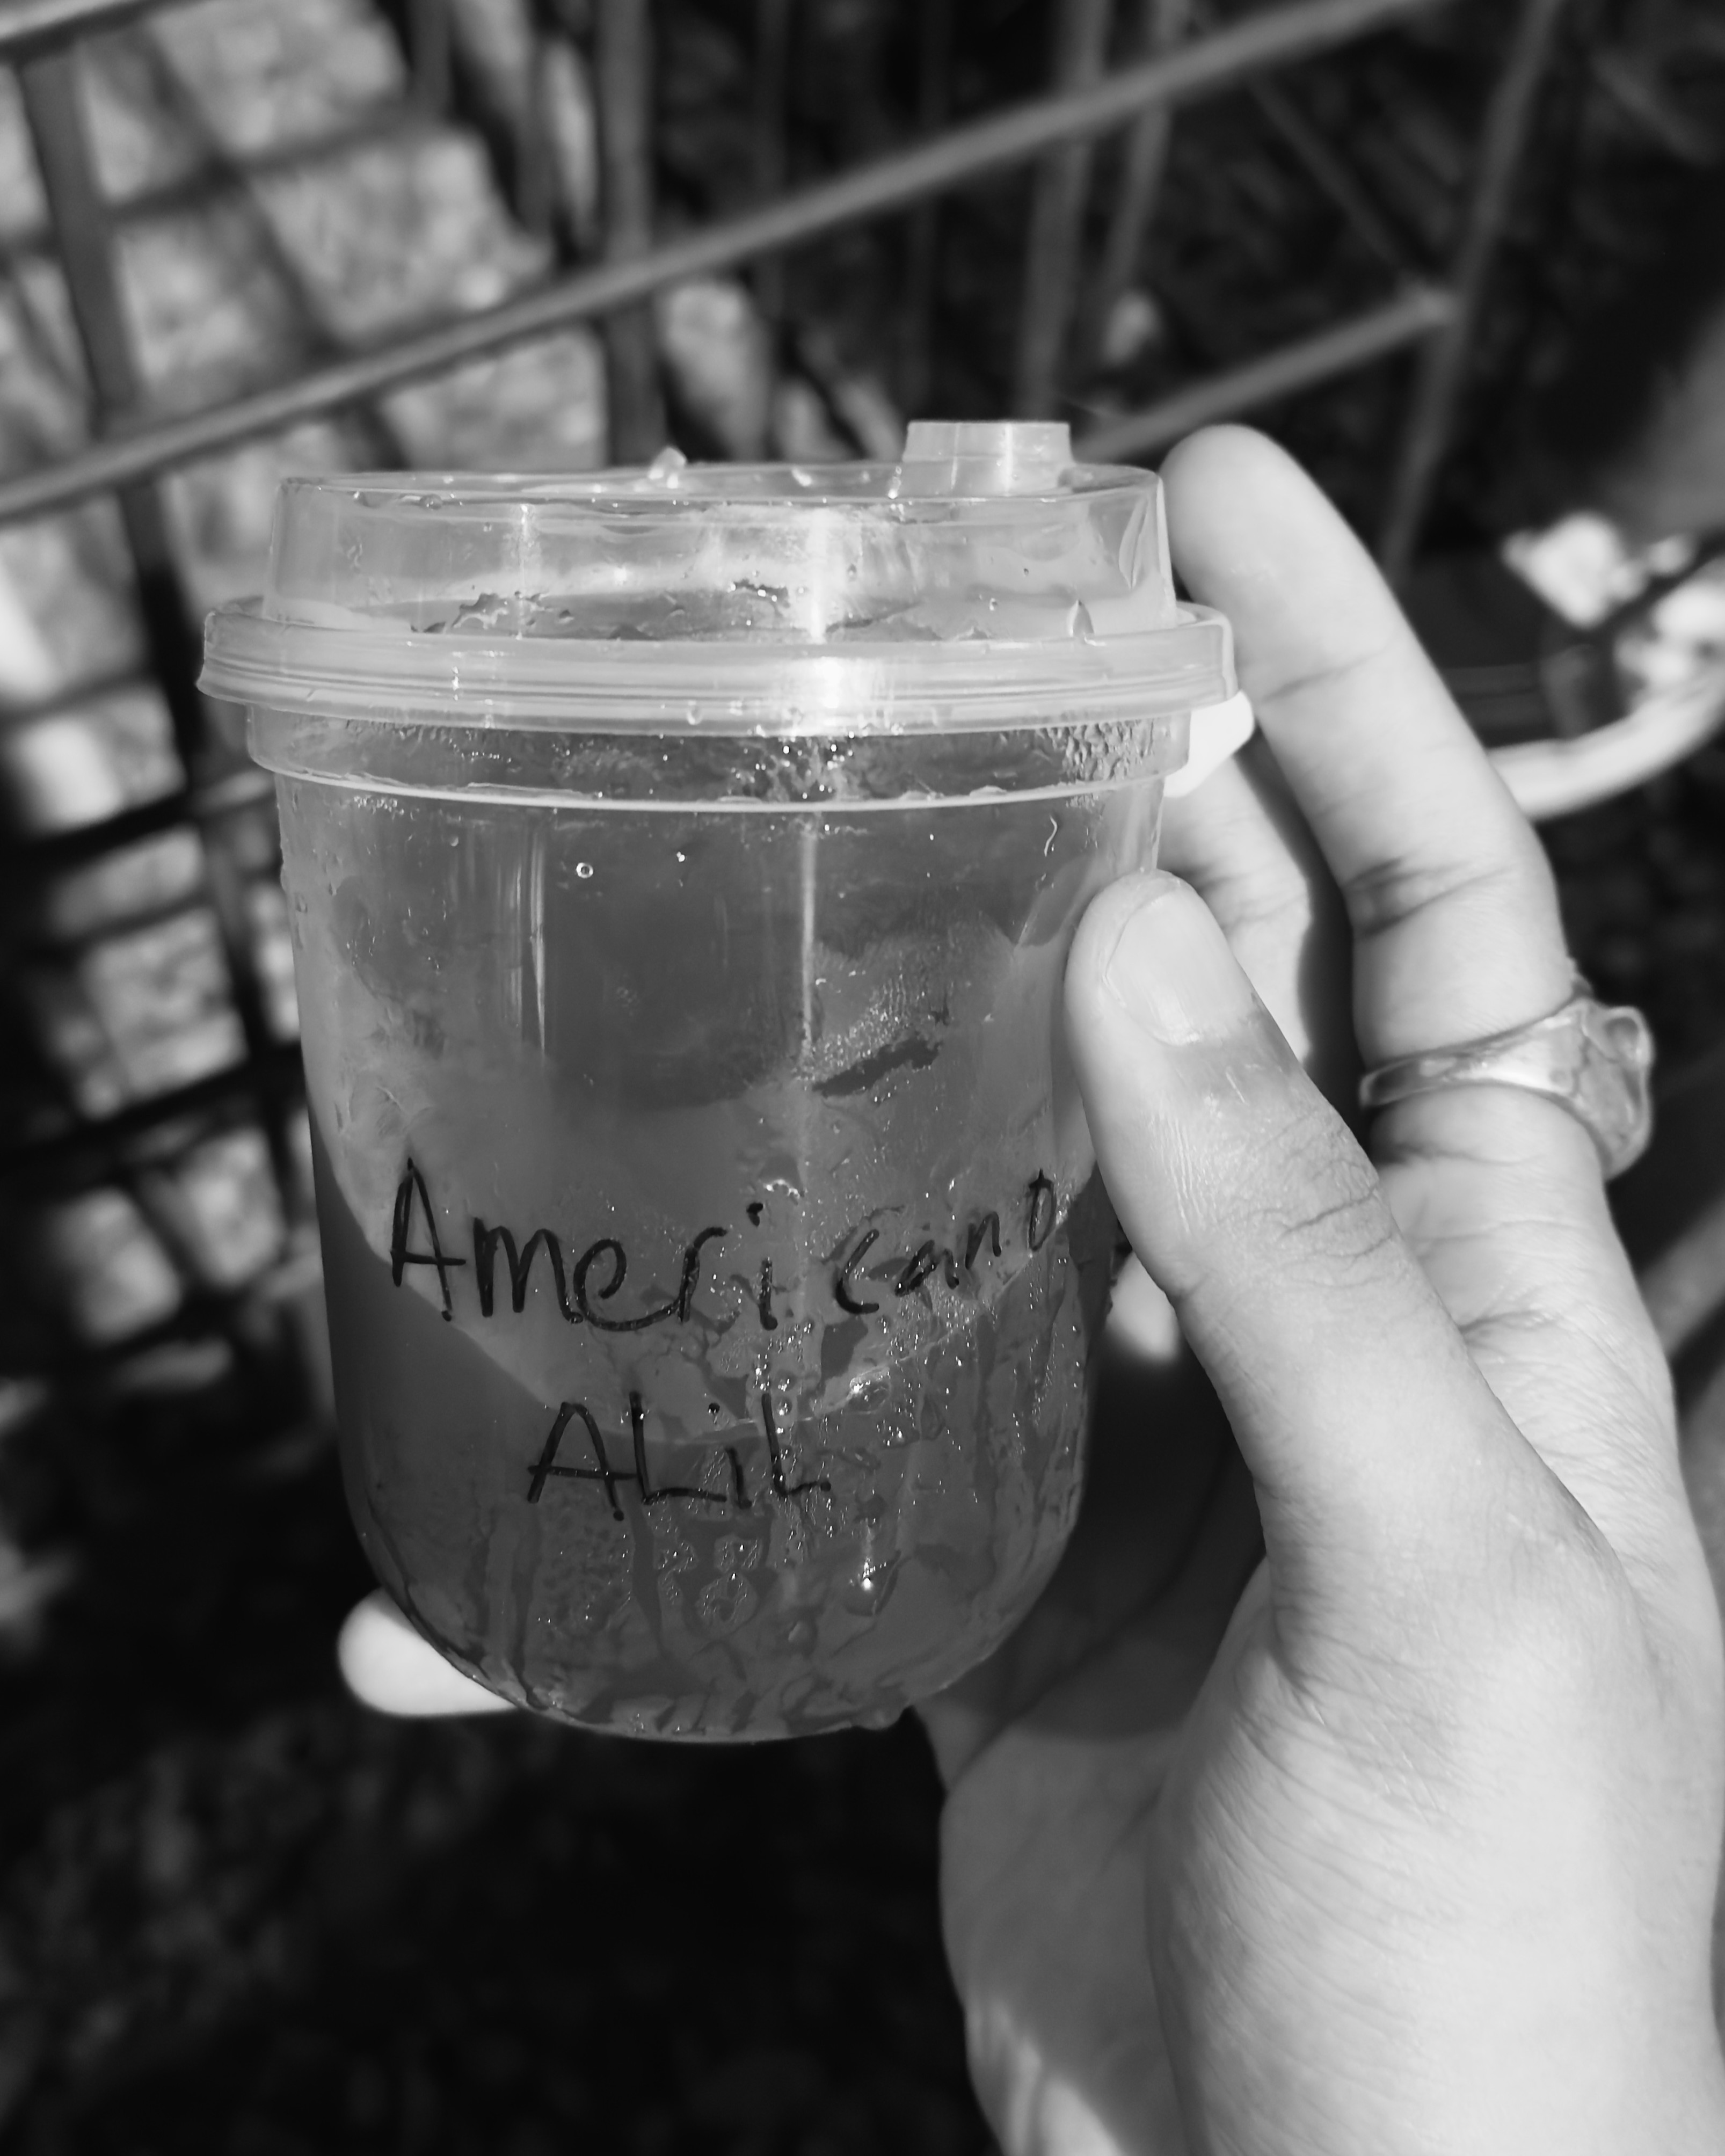 Americano
ALiL